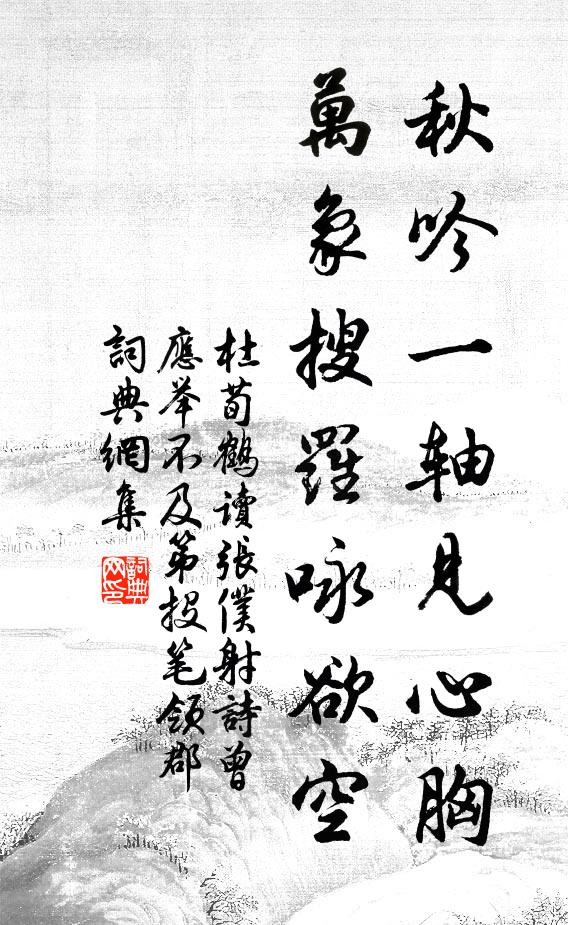 秋吟一轴見心胸
萬象搜羅咏欲空
杜荀鶴讀張僕射詩曾
應举不及第投笔领郡
詞典網集
詞典
网印